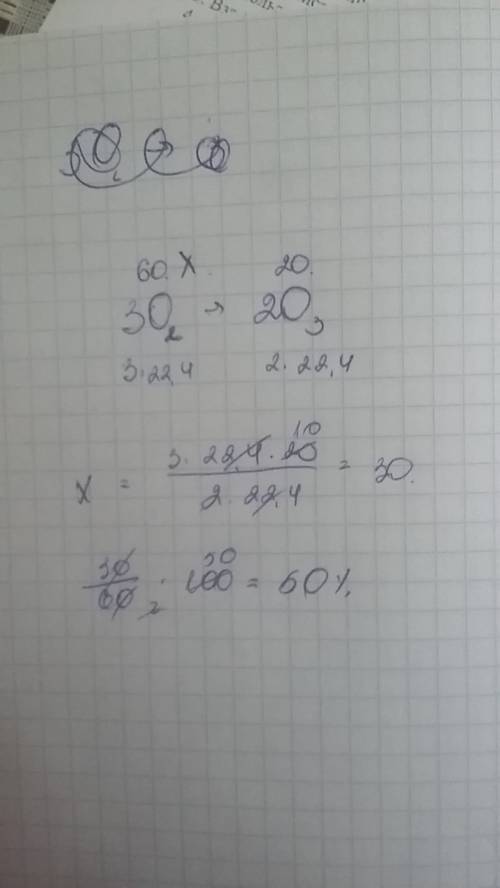 60. X. 20.
3O₂ → 2O₃
3·22,4 2·22,4
X = 3·22,4·20 10 / 2·22,4 = 30.
30/60 2 · 100 50 = 50%